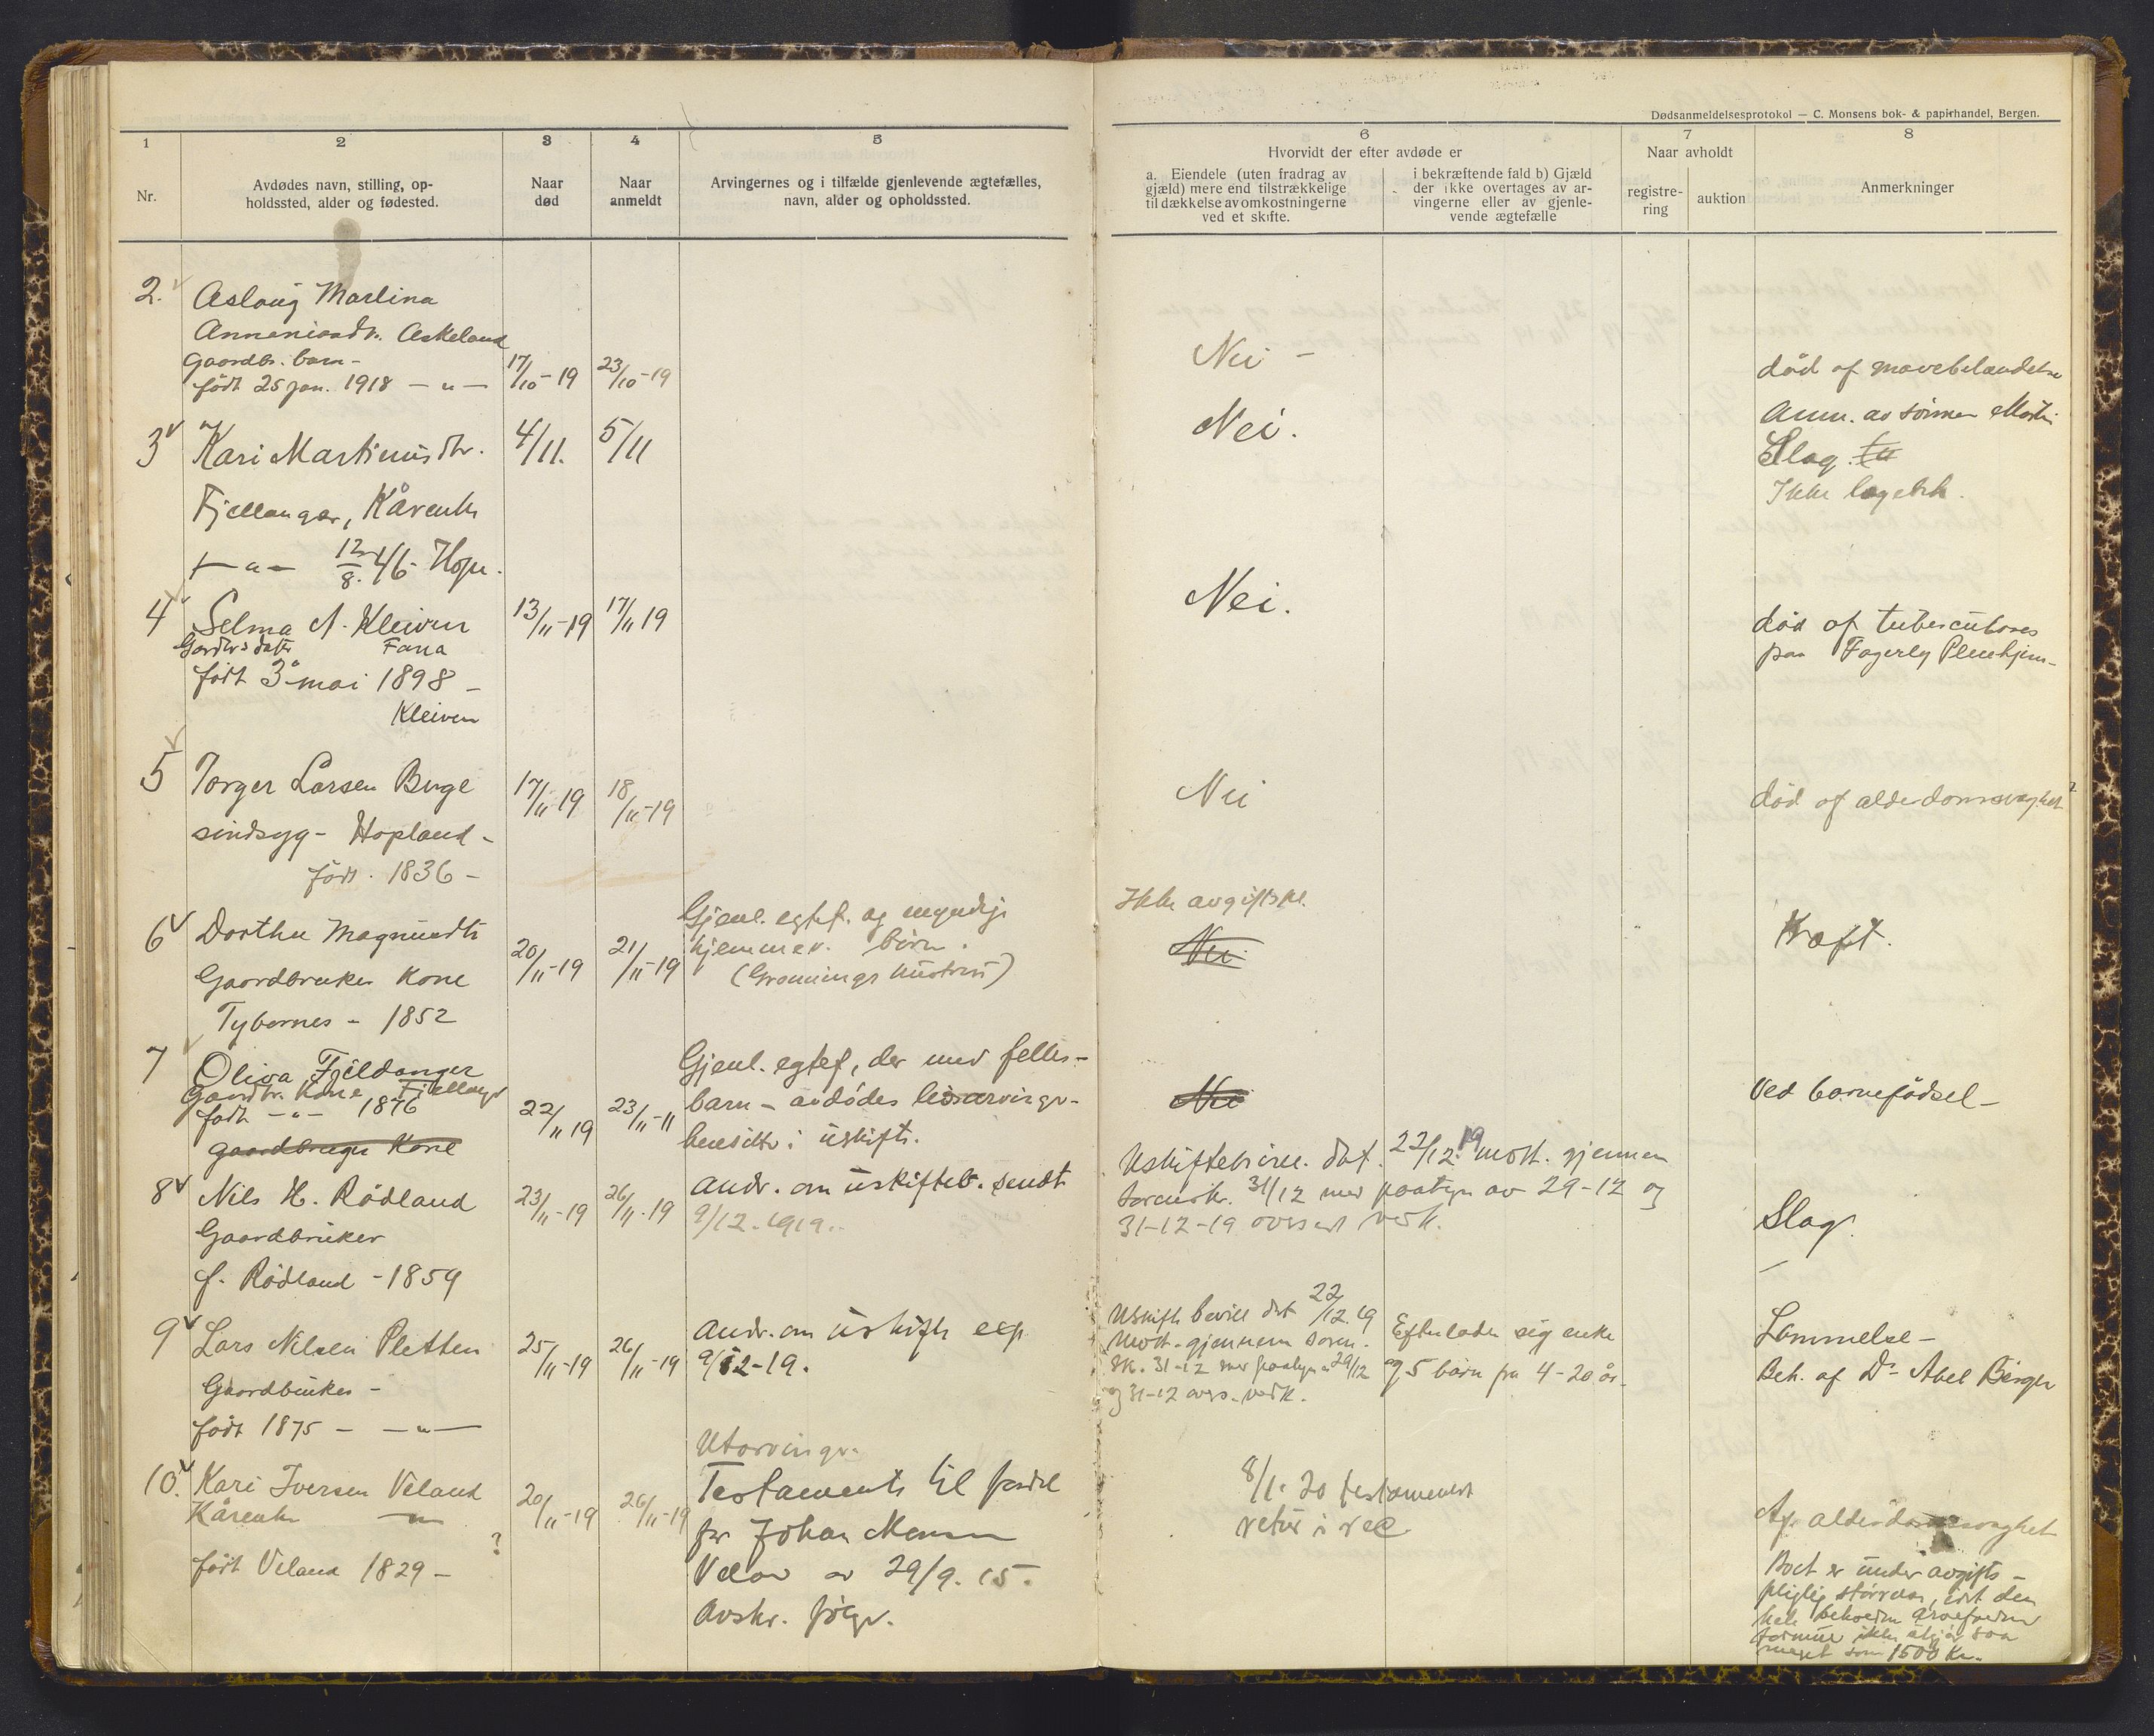 Dødsanmeldelsesprotokol — C. Monsens bok- & papirhandel, Bergen.
1
2
3
4
5
6
7
8
Nr.
Avdødes navn, stilling, op-
holdssted, alder og fødested.
Naar
død
Naar
anmeldt
Arvingernes og i tilfælde gjenlevende ægtefælles,
navn, alder og opholdssted.
Hvorvidt der efter avdøde er
a. Eiendele (uten fradrag av
gjæld) mere end tilstrækkelige
til dækkelse av omkostningerne
ved et skifte.
i bekræftende fald b) Gjæld
der ikke overtages av ar-
vingerne eller av gjenle-
vende ægtefælle
Naar avholdt
registre-
ring
auktion
Anmerkninger
2.
Aslaug Martina
Askeland
Gaardbr. barn -
født 25 jan. 1918 — „ —
17/10-19
23/10-19
Nei -
død af
3
Kari Martinusdtr.
Fjellanger, Kårenke
12/8. 46- Hope.
4/11.
5/11
Nei.
Anm. av
Slag.
Ikke
4
Selma A. Kleiven
Fana
født 3 mai 1898 -
Kleiven
13/11-19
17/11 19
Nei.
død af tuberculoses
paa Fagerly Pleiehjem-
5
Torger Larsen Berge
sindsyg - Hopland -
født. 1836 -
17/11-19
18/11-19
Nei
død af alderdomsvaghet
6
Dorthe Magnusdtr
Gaardbruker Kone
Tybernes - 1852
20/11-19
21/11-19
Gjenl. egtef. og myndige
hjemmev. børn.
Ikke avgiftspl.
Nei
Kræft.
7
Oliva Fjeldanger
Gaardbr. Kone Fjellanger
født -„- 1876
gaardbruger Kone
22/11 19
23/11-11
Gjenl. egtef, der med felles-
barn - avdødes livsarvinger-
hensitter i uskifte.
Nei
Ved barnefødsel -
8
Nils H. Rødland
Gaardbruker
f. Rødland - 1859
23/11-19
26/11-19
Andr. om uskifteb. sendt
9/12-1919.
Uskiftebevill. dat. 22/12. 19 mott. gjennem
sorensk. 31/12 med paategn av 29-12 og
31-12-19 oversendt vedk.
Slag.
9
Lars Nilsen Pletten
Gaardbruker -
født 1875 - — „ —
25/11-19
26/11-19
Andr. om uskifte exp
9/12-19.
Uskifte bevill dat 22/12.19
Mott. gjennem soren-
sk. 31-12 med paategn 29/12
og 31-12 overs. vedk.
Efterlader sig enke
og 5 børn fra 4-20 år-
Lammelse -
Beh. af Dr Abel Bergen
10.
Kari Iversen Veland
Kårenke — „ —
født Veland 1829 -
?
20/11-19
26/11-19
Utarvinger.
Testamente til fordel
for Johan Monsen
Veland av 29/9. 15.
Avskr. følger.
8/1. 20 testamentet
retur i rec
Af alderdomssvaghet
Boet er under avgifts-
pligtig størrelse, idet den
hele beholdne
formue ikke utgjør saa
meget som 1500 Kr.